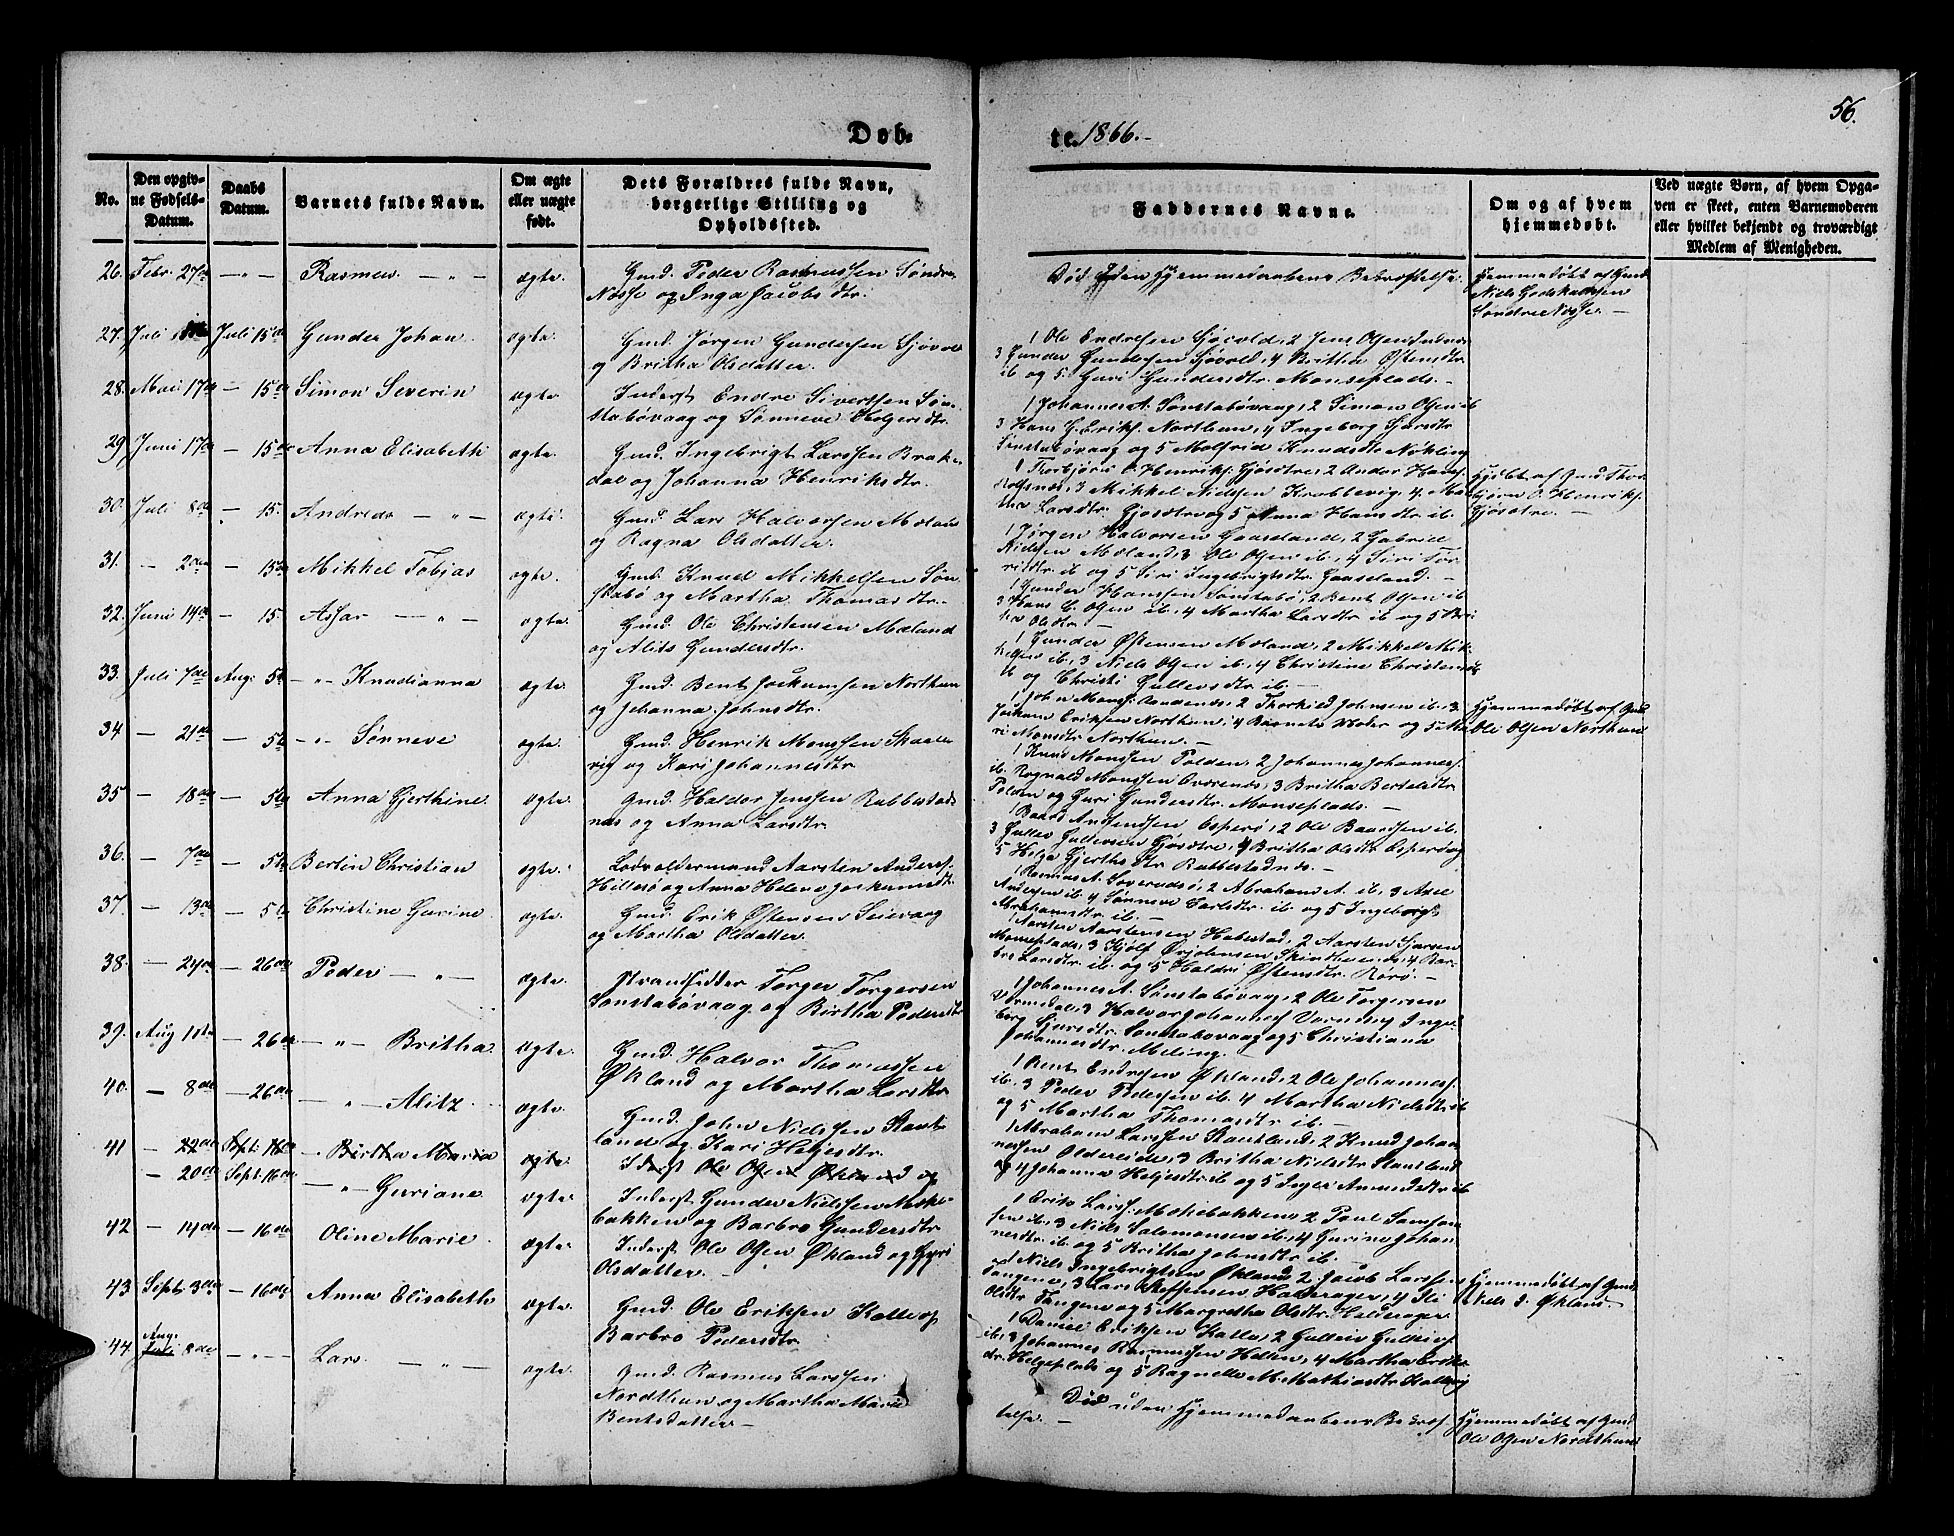 56.
Døb-
te. 1866.-
No.
Den opgiv-
ne Fødsels-
Datum.
Daabs
Datum.
Barnets fulde Navn.
Om ægte
eller uægte
født.
Dets Forældres fulde Navn,
borgerlige Stilling og
Opholdssted.
Faddernes Navne.
Om og af hvem
hjemmedøbt.
Ved uægte Børn, af hvem Opga-
ven er skeet, enten Barnemoderen
eller hvilket bekjendt og troværdigt
Medlem af Menigheden.
26. Febr. 27de —"— Rasmus — " — ægte. Gmd. Peder Rasmussen Søndre
Næsse og Inga Jacobsdtr.
Død uden Hjemmedaabens Bekræftelse.
Hjemmedøbt af Gmd
Niels Godskalksen
Søndre Næsse. —
27. Juli Juli 15de Gunder Johan ægte. Gmd. Jørgen Gundersen Sjøvold
og Britha Olsdatter.
1 Ole Endresen Sjøvold, 2 Jens Olsen
3 Gunder Gundersen Sjøvold, 4 Britha Østensdtr.
ib og 5. Guri Gundersdtr. Monseplads. —
28. Mai 17de — 15de Simon Severin ægte. Inderst Endre Sivertsen Søn-
stabøvaag og Sønneve Helgesdtr.
1 Johannes A. Sønstabøvaag, 2 Simon Olsen ib
3 Hans H. Eriks. Northun, 4 Ingeborg Gjersdtr
Sønstabøvaag og 5 Molfrid Knudsdtr Nøkling
29 Juni 17de — 15de Anna Elisabeth ægte. Gmd. Ingebrigt Larssen Brake-
dal og Johanna Henriksdtr.
1 Thorbjørn O. Henriks. Gjøsdtre, 2 Ander Hans.
Rolfsnæs, 3 Mikkel Nielsen Krabbevig, 4. Mar-
tha Larsdtr. Gjøsdtre og 5 Anna Hansdtr ib.
Hjdøbt af Gmd Thor-
bjørn O. Henriks.
Gjøsdtre. —
30. Juli 8de — 15. Andreas — " — ægte. Gmd. Lars Halvorsen Mæland
og Ragna Olsdatter.
1 Jørgen Halvorsen Gaaseland, 2 Gabriel
Nielsen Mæland, 3 Ole Olsen ib, 4 Siri Tor-
ib og 5 Siri Ingebrigtsdtr. Gaaseland. —
31. — 2den — 15de Mikkel Tobjas ægte. Gmd. Knud Mikkelsen Søn-
stabø og Martha Thomasdtr.
1 Gunder Hanssen Sønstabø, 2 Bent Olsen ib
3 Hans C. Olsen ib, 4 Martha Larsdtr ib og 5 Bri-
tha Olsdtr. —
32. Juni 14de — 15. Assar — " — ægte. Gmd. Ole Christensen Mæland
og Alits Gundersdtr.
1 Gunder Østensen Mæland, 2 Mikkel Mik-
kelsen ib, 3 Niels Olsen ib, 4 Christine Christensdtr
ib og Christi Gullevsdtr ib. —
33. Juli 7de Aug: 5te —"— Knudianna ægte. Gmd. Bent Jockumsen Northun
og Johanna Johnsdtr.
1 John Mons. Aadnenes, 2 Thorkild Johnsen ib. 3
Jockum Eriksen Northun, 4 Barnets Moder og 5 Ma-
ri Monsdtr Northun. —
Hjemmedøbt af Gmd
Ole Olsen Northun
34. — 21de — 5te —"— Sønneve ægte. Gmd. Henrik Monssen Skaale-
vig og Kari Johannesdtr
1 Knud Monssen Folden, 2 Johannes Johannes.
ib. Rognald Monssen Overnæs, 3 Britha Bertelsdtr
Folden og Guri Gundersdtr. Monseplads. —
35 — 18de — 5te Anna Gjerthine ægte. Gmd. Haldor Jenssen Rabbestad-
næs og Anna Larsdtr.
1 Baard Andersen Esperø, 2 Ole Baardsen ib.
3 Gullev Gullevsen Gjøsdtre, 4 Britha Olsdtr Espevog
5 Helga Gjerthsdtr Rabbestadnæs. —
36. — 7de — 5te Bertin Christian ægte. Lodsoldermand Aarsten Anders.
Hillesø og Anna Helene Jockumsdtr.
1 Rasmus A. , 2 Abraham A. ib. 3 Axel
Andersen ib. 4 Sønneve Carlsdtr. ib. og 5 Ingeborg
Abrahamsdtr ib. —
37. — 13de — 5te Christine Gurine. ægte. Gmd. Erik Østensen Seievaag
og Martha Olsdatter.
1 Aarsten Aarstensen Habestad, 2 Aarsten Sjursen
Monseplads, 3 Kjølf Skimthevends, 4 Bar-
bro Larsdtr. ib. og 5 Haldri Østensdtr. Rørø. —
38. — 24de — 26de Peder — " — ægte. Strandsidder Torger Torgersen
Sønstabøvaag og Birtha Pedersdtr
1 Johannes A. Sønstabøvaag, 2 Ole Torgersen
Vorndal, 3 Halvor Johannes. Vorndal, Inge-
borg Sjursdtr. Sønstabøvaag og 5 Christiana
Johannesdtr. Meling. —
39. Aug 11te — 26de —"— Britha ægte. Gmd. Halvor Thomassen
Økland og Martha Larsdtr
1 Bent Endresen Økland, 2 Ole Johannes.
ib. 3 Peder Pedersen ib. 4 Martha Nielsdtr. ib
og 5 Martha Thomasdtr ib. —
40. — 8de — 26de — " — Alitz ægte. Gmd. John Nielssen Staut-
land og Kari Heljesdtr.
1 Abraham Larssen Stautland, 2 Knud Johan-
nessen Oldereide, 3 Britha Nielsdtr Stautland
og 4 Johanna Heljesdtr. ib og 5 Inger Amundsdtr ib
41 — 24de Sept: 16de —"— Birtha Maria ægte Idrest Ole Olsen Økland og
— 20de Sept: 16de — " — Guriane ægte. Inderst Gunder Nielssen Mæhle-
bakken og Barbro Gundersdtr
1 Erik Lars. Mæhlebakken, 2 Paul Samson-
sen ib, 3 Niels Salomonsen ib, 4 Gurine Johan-
nesdtr. ib og 5 Britha Johnsdtr ib.
42 — 14de — 16de Oline Marie. ægte. Inderst Ole Olsen Økland og Guri
Olsdatter. —
1 Niels Ingebrigtsen Økland, 2. Jacob Larssen
Tangene, 3 Lars Steffensen Halderager, 4 Eli
Olsdtr Tangene og 5 Margretha Olsdtr. Halderager
Hjemmedøbt af Gmd.
Niels I. Økland. —
43. Sept: 3de — 16de Anna Elisabeth ægte. Gmd. Ole Eriksen Kalle og
Barbro Pedersdtr
1 Daniel Eriksen Kalle, 2 Gulleiv Gulleivs.
ib. 3 Johannes Rasmussen Holken, 4 Martha Eriks-
dtr. Helgeplads og 5 Ragnille M. Mathiasdtr. Kallevig
44. Aug: Juli 8de —"— Lars — " — ægte. Gmd. Rasmus Larssen
Nordthun og Martha Marie
Bentsdatter —
Død uden Hjemmedaabens Bekræf-
telse. —
Hjemmedøbt af Gmd.
Ole Olsen Nordthun